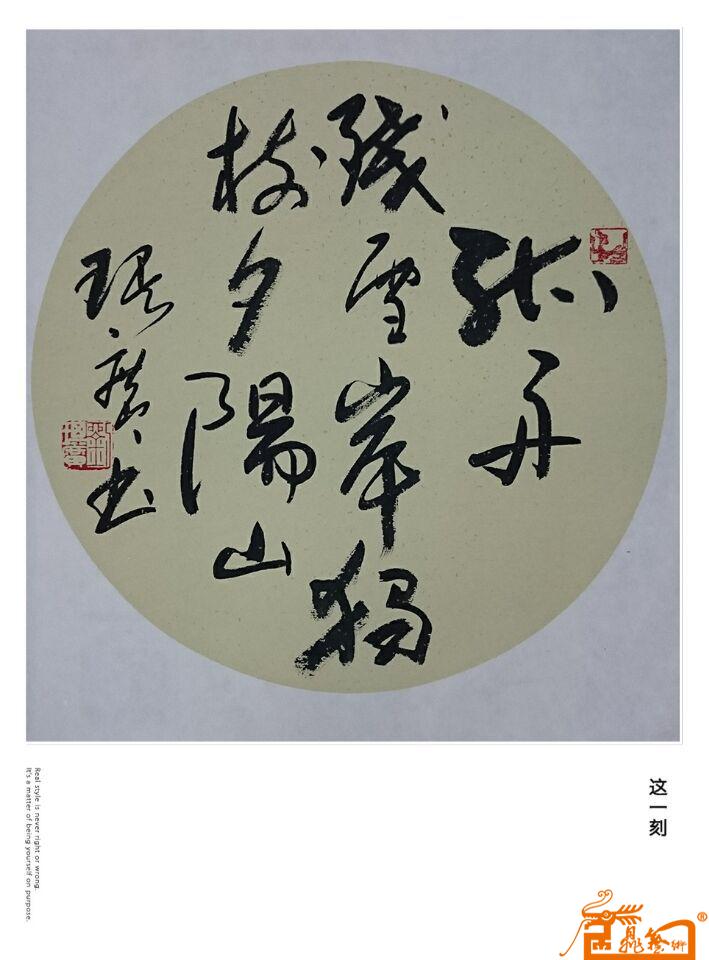 孤舟
殘雪岸獨
樹夕陽山
瑛广书
这一刻
Real style is never right or wrong.
It's a matter of being yourself on purpose.